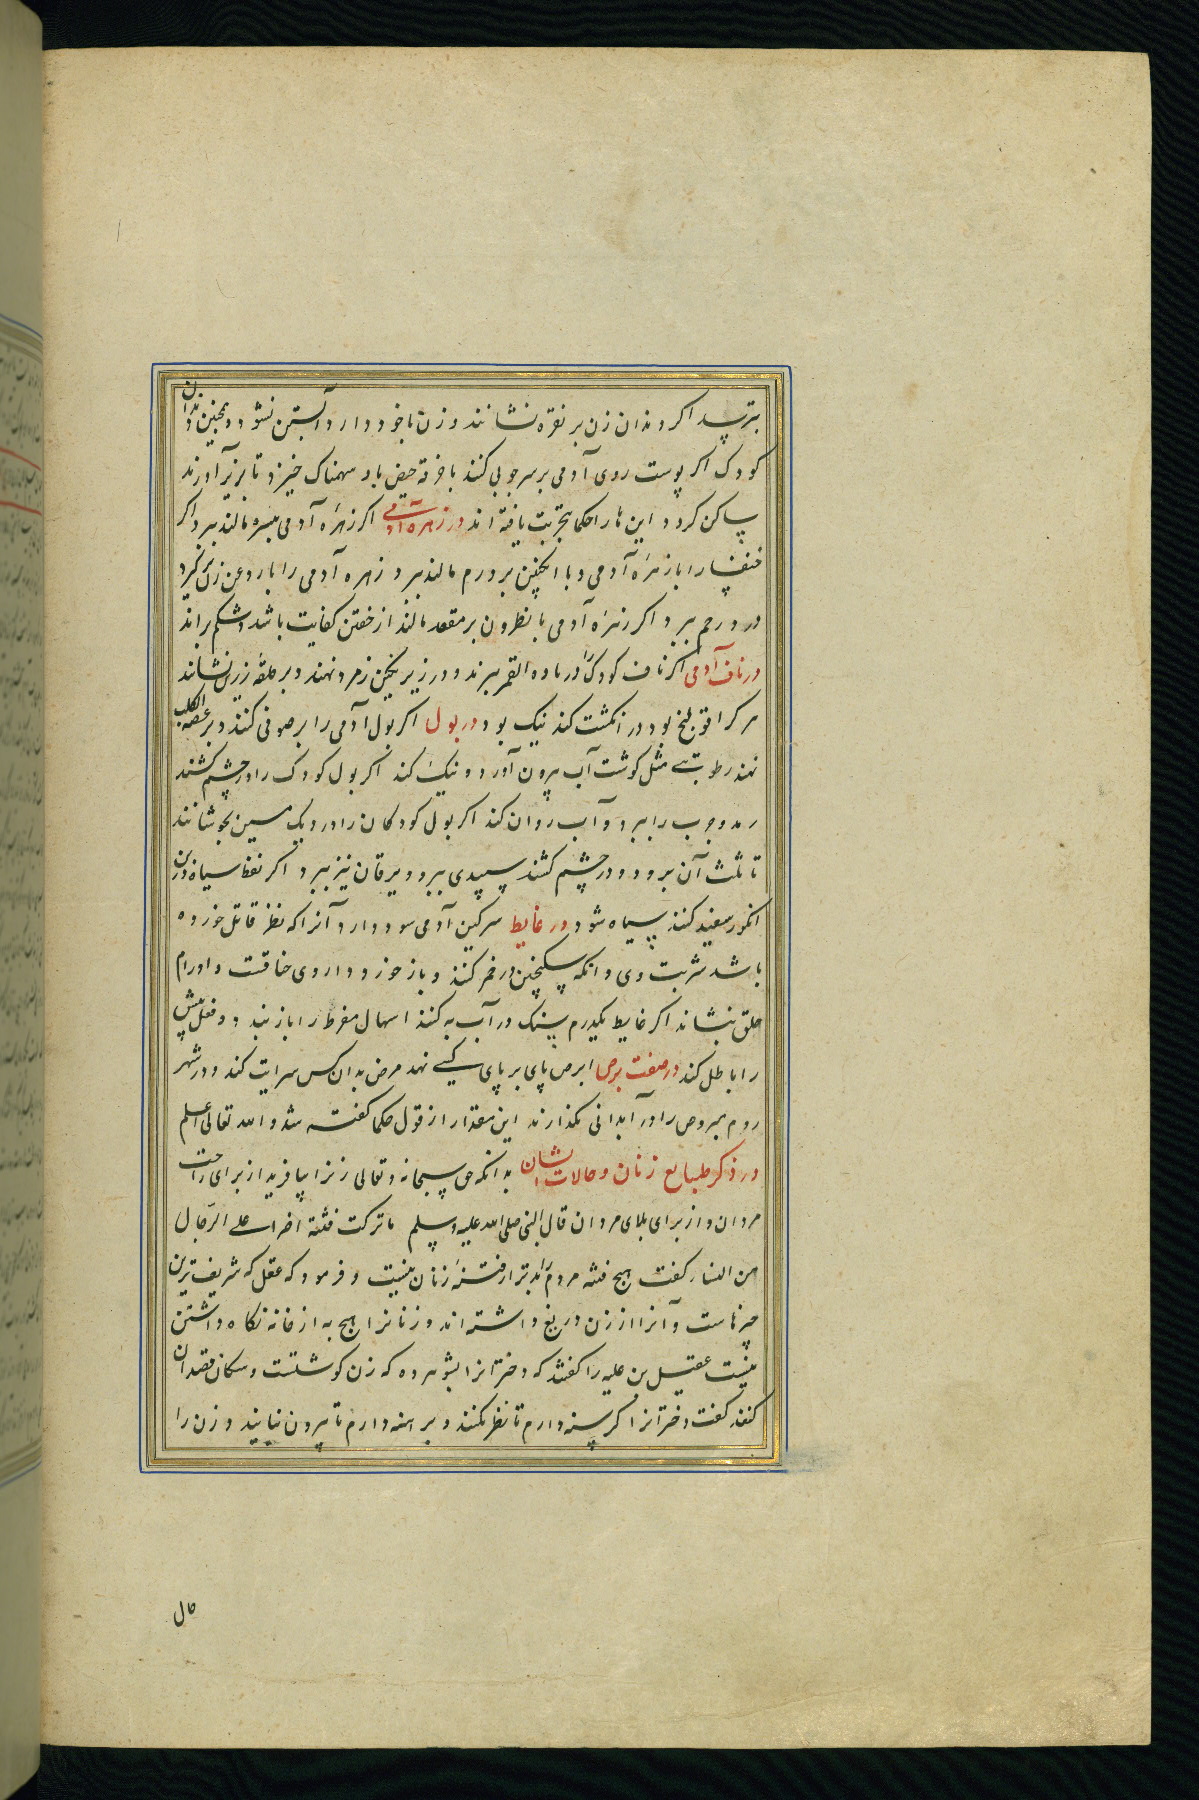 بترسد اگر دندان زن بر نقره نشانند و زن باخود دارد آبستن نشود و همچنین دندان
کودک اگر پوست روی آدمی بر سر چوبی کنند با خرقه حیض باد سهمناک خیزد تا بزیر آورند
ساکن گردد این ها را حکما بتجربت یافته اند در زهره آدمی اگر زهره آدمی بسرمه مالند ببرد اگر
خنفسا را با زهره آدمی و با انجبین بر ورم مالند ببرد زهره آدمی را با روغن زن برگیرد
درد رحم ببرد اگر زهره آدمی با نطرون بر مقعد مالند از خفتن کفایت باشد و شکم براند
در ناف آدمی اگر ناف کودک را در ماده القمر ببرند و در زیر نگین زمرد نهند و بر حلقه زرین نشانند
هر کرا قولنج بود در انگشت کند نیک بود در بول اگر بول آدمی را بر صوفی کنند و بر عضه الکلب
نهند رطوبتی مثل گوشت آب بیرون آورد و نیک کند اگر بول کودک را در چشم کشند
رمد و جرب را ببرد و آب روان کند اگر بول کودکان را در دیک مسین بجوشانند
تا ثلث آن برود و در چشم کشند سپیدی ببرد و یرقان نیز ببرد اگر نفط سیاه در بن
انگور سفید کنند سیاه شود در غایط سرگین آدمی سود دارد آنرا که فطر قاتل خورده
باشد شربت وی و انکه سکنجبین در خمر کنند و باز خورد داروی خناقست و اورام
حلق بنشاند اگر غایط یکدرم سنک در آب به کنند اسهال مفرط را باز بندد و فعل بیش
را باطل کند در صفت برص ابرص پای بر پای کسی نهد مرض بدان کس سرایت کند و در شهر
روم مبروص را در آبدانی نگذارند این مقدار از قول حکما گفته شد والله تعالی اعلم
در ذکر طبایع زنان و حالات ایشان بدانکه حق سبحانه و تعالی زنرا بیافرید از برای راحت
مردان و از برای بلای مردان قال النبی صلی الله علیه وسلم ما ترکت فتنة اضر علی الرجال
من النساء گفت هیچ فتنه مردم را بدتر از فتنه زنان نیست و فرمود که عقل که شریف‌ترین
چیزهاست و آنرا از زن دریغ داشته اند و زنانرا هیچ به از خانه نگاه داشتن
نیست عقیل بن علیه را گفتند که دخترانرا بشوهر ده که زن گوشتست و سکان قصد آن
کنند گفت دخترانرا گرسنه دارم تا نظر نکنند و برهنه دارم تا بیرون نیایند و زن را
مال